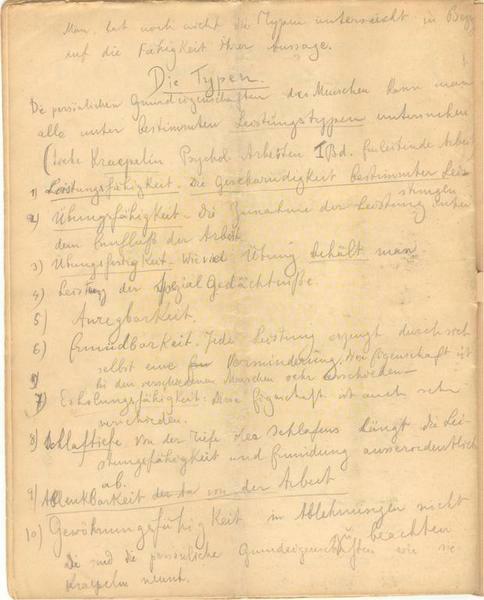 Man hat noch nicht die Typen untersucht in Bezug
auf die Fähigkeit ihrer Aussage.
Die Typen.
Die persönlichen Grundeigenschaften des Menschen kann man
alle unter bestimmten Leistungstypen unterziehen
(siehe Kraepelin Psychol. Arbeiten I Bd. Einleitende Arbeit
1) Leistungsfähigkeit. Die Geschwindigkeit bestimmter Lei-
stungen
2) Übungsfähigkeit. Die Zunahme der Leistung unter
dem Einfluß der Arbeit
3) Übungsfestigkeit. Wie viel Übung behält man
4) Leistung der Spezial Gedächtniße.
5) Anregbarkeit.
6) Ermüdbarkeit. Jede Leistung erzeugt durch sich
selbst eine Verminderung. Diese Eigenschaft ist
bei den verschiedenen Menschen sehr verschieden
7) Erholungsfähigkeit: Diese Eigenschaft ist auch sehr
verschieden.
8) Schlaftiefe von der Tiefe des Schlafens hängt die Lei-
stungsfähigkeit und Ermüdung ausserordentlich
ab.
9) Ablenkbarkeit von der Arbeit
10) Gewöhnungsfähigkeit in Ablehnungen nicht
zu beachten
Die sind die persönliche Grundeigenschaften wie sie
Kraepelin nennt.